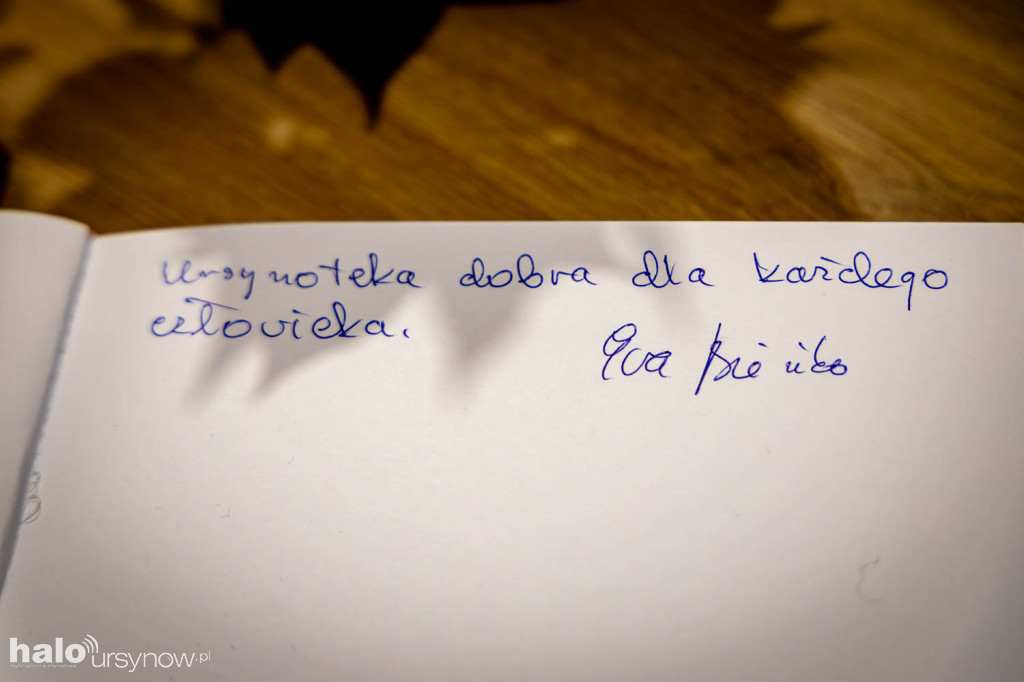 Ursynoteka dobra dla każdego
człowieka.
Ewa
halo ursynow.pl